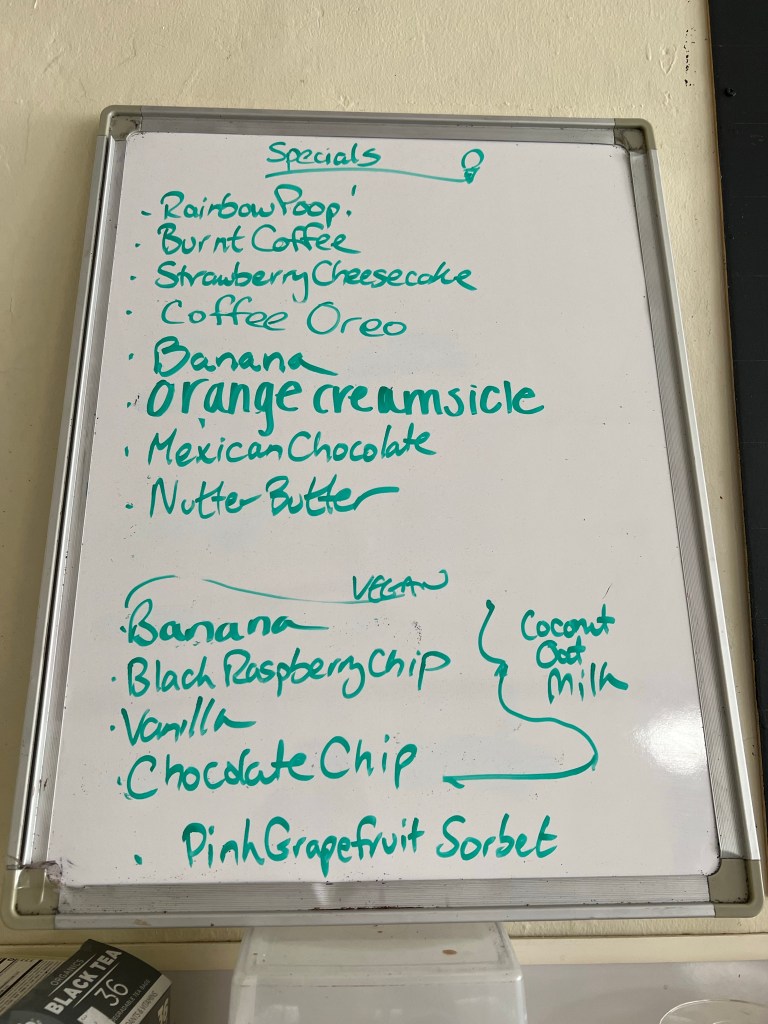 Specials
- Rainbow Poop!
· Burnt Coffee
· Strawberry Cheesecake
· Coffee Oreo
· Banana
· orange creamsicle
· Mexican Chocolate
· Nutter Butter
VEGAN
· Banana
· Black Raspberry Chip
· Vanilla
· Chocolate Chip
Coconut
Oat
Milk
· Pink Grapefruit Sorbet
ORGANIC
BLACK TEA
36